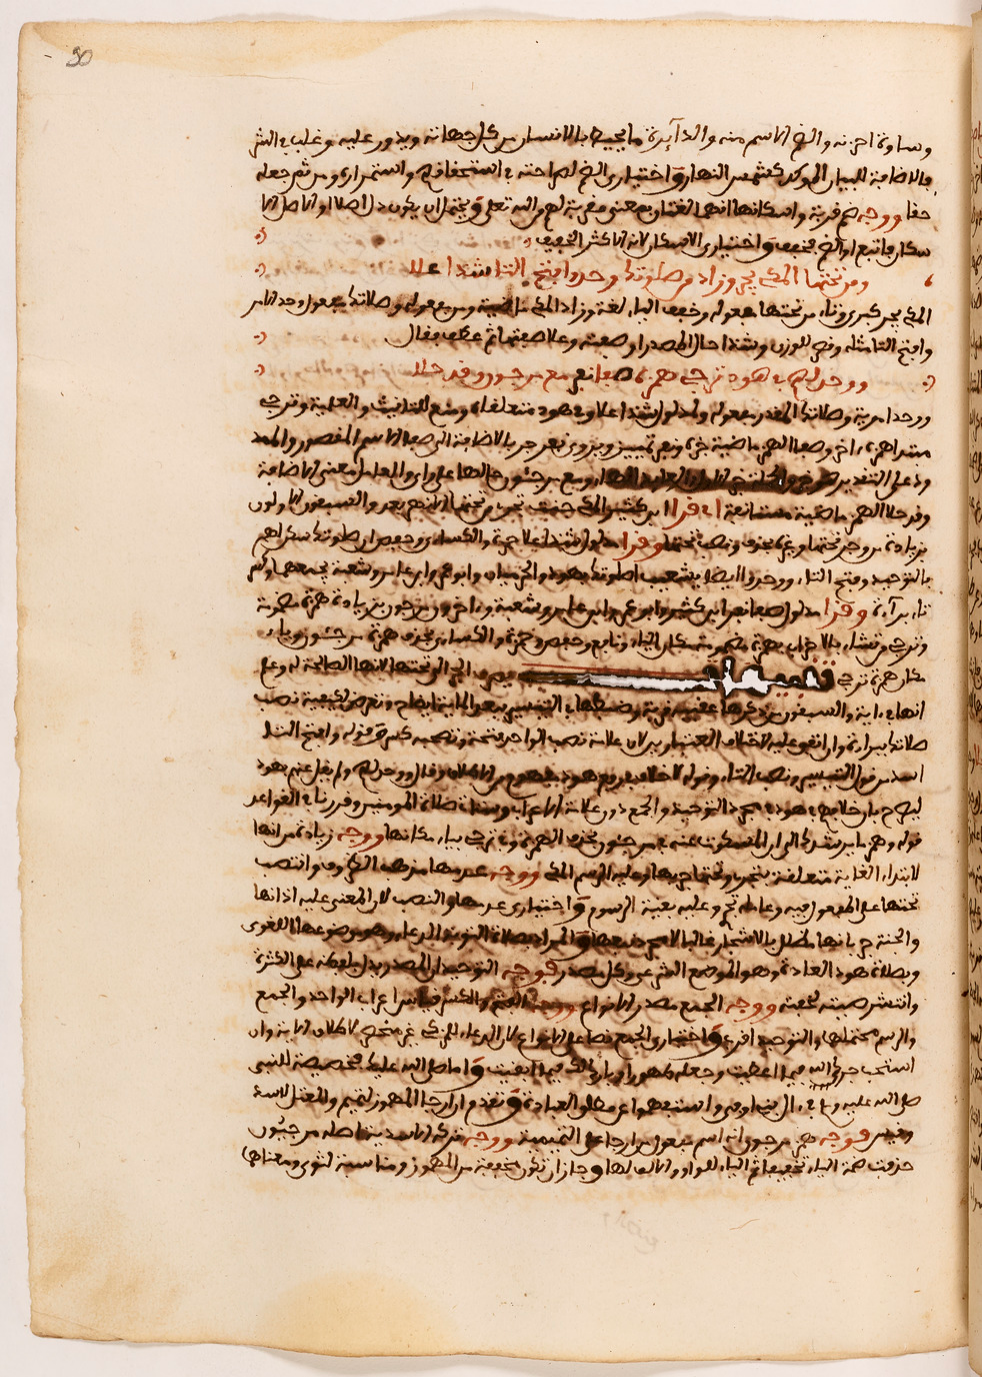 30
وساوة احزنه والضم الاسم منه والدايرة ما يحيط بالانسان من كل جهاته ويدور عليه وغلب في الشر
فالاضافة للبيان الموكد كشمس النهار واختياري الضم لصراحته في استحقاقهم واستمراره ومن ثم جعله
حقا ووجه ضم قربة واسكانها انهما لغتان بمعنى مقربة لهم من الله تعلى ويحتمل ان يكون كل اصلا او الاصل الا
سكان فاتبع او الضم فخفف واختياري الاسكان لانه الاكثر الخفيف
ومن تحتها المكي يجر وزاد من صلوتك وحد وافتح التا شذا علا
المكي يجر كبرى وتاء من تحتها مفعوله وخفف الياء لغة وزاد المكي من ومن مفعوله وصلاتك مفعول وحد الامر
وافتح التا مثله وقصر للوزن وشذا حال المصدر او صفته وعلا صفتها ثم عطف فقال
ووحد لهم في هود ترجي همزه صفا نفر مع مرجئون وقد حلا
ووحد امرية وصلاتك المقدر مفعوله ولمدلول شذا علا وفي هود متعلقاه ومنع للتانيث والعلمية وترجي
مبتدا همزه اخر وصفا الهمز ماضية خبره ونفر تمييز ويروى نفر جر بالاضافة الى صفا الاسم المقصور والممد
ود على التقدير ومع مرجئون حالها على راي والعامل معنى الاضافة
وقد حلا الهمز ماضية مستانفة اي قرا ابن كثير المكي جنت تجري من تحتها الانهر بعد والسبقون الاولون
بزيادة من وجر تحتها وغيره بحذف ونصب تحتها وقرا مدلول شذا علا حمزة والكساءي وحفص ان صلوتك سكن لهم
بالتوحيد وفتح التاء ووحدوا ايضا يشعيب اصلوتك بهود والحرميان وابو عمرو وابن عامر وشعبة بجمعهما وكسر
تاء براءة وقرا مدلول صفا نفر ابن كثير وابو عمرو وابن عامر وشعبة واخرون مرجون بزيادة همزة مضمومة
وترجي من تشاء بالاحزاب بهمزة مضمومة مكان الياء ونافع وحفص وحمزة والكساءي بحذف همزة مرجئون وياء
مكان همزة ترجي الى تحتها لانها الصالحة له وعلى
انها في اية والسبقون من ذكرها عقيب قربة وضبطها في التيسير ببعد الماية ايضاح وتعرض لكيفية نصب
صلاتك ببراءة وان اتفق عليه لاختلاف العبارتين لان علامة نصب الواحد فتحة ونصبه كسرة وقوله وافتح التا
اسد من قول التيسير ونصب التاء وقوله لا خلاف في رفع هود مفهوم من الاطلاق وقال ووحد لهم ولم يقل عنهم بهود
ليصرح بان خلافهم في هود في مجرد التوحيد والجمع دون علامة الاعراب صلاة المومنين وقررنا في القواعد
قوله وهمز ما ينقل الى ان المسكوت عنه في مرجئون بحذف الهمزة وفي ترجي بياء مكانها ووجه زيادة من انها
لابتداء الغاية متعلقة بتجري وتحتها جر بها وعليه الرسم المكي ووجه عدمها مذهب الظروف وانتصب
تحتها على المفعول فيه وعامله تجري وعليه بقية الرسوم واختياري عدمها والنصب لان المعنى عليه اذ انها
والجنة
وبصلاة هود العبادة وهو الموضع الشرعي وكل مصدر فوجه التوحيد ان المصدر يدل بلفظه على الكثرة
وانتشر صيته لخفته ووجه الجمع مصدر الانواع ووجه الفتح والكسر قياس اعراب الواحد والجمع
والرسم محتملها والتوحيد اقرب واختياري الجمع نصا على الانواع لان الدعاء للمزكي غير منحصر لاطلاق الاية وان
استحب جزاك الله فيما اعطيت وجعله طهورا وبارك لك فيما ابقيت واما صلى الله عليك فخصيصة للنبي
صلى الله عليه وسلم
فوجه همز مرجون انه اسم مفعول من ارجا على التميمية ووجه تركه
حذفت ضمة الياء تخفيفا ثم الياء للواو والالف لها وجاز ان تكون مخففة من المهموز ومناسبة لتوي ومعناها